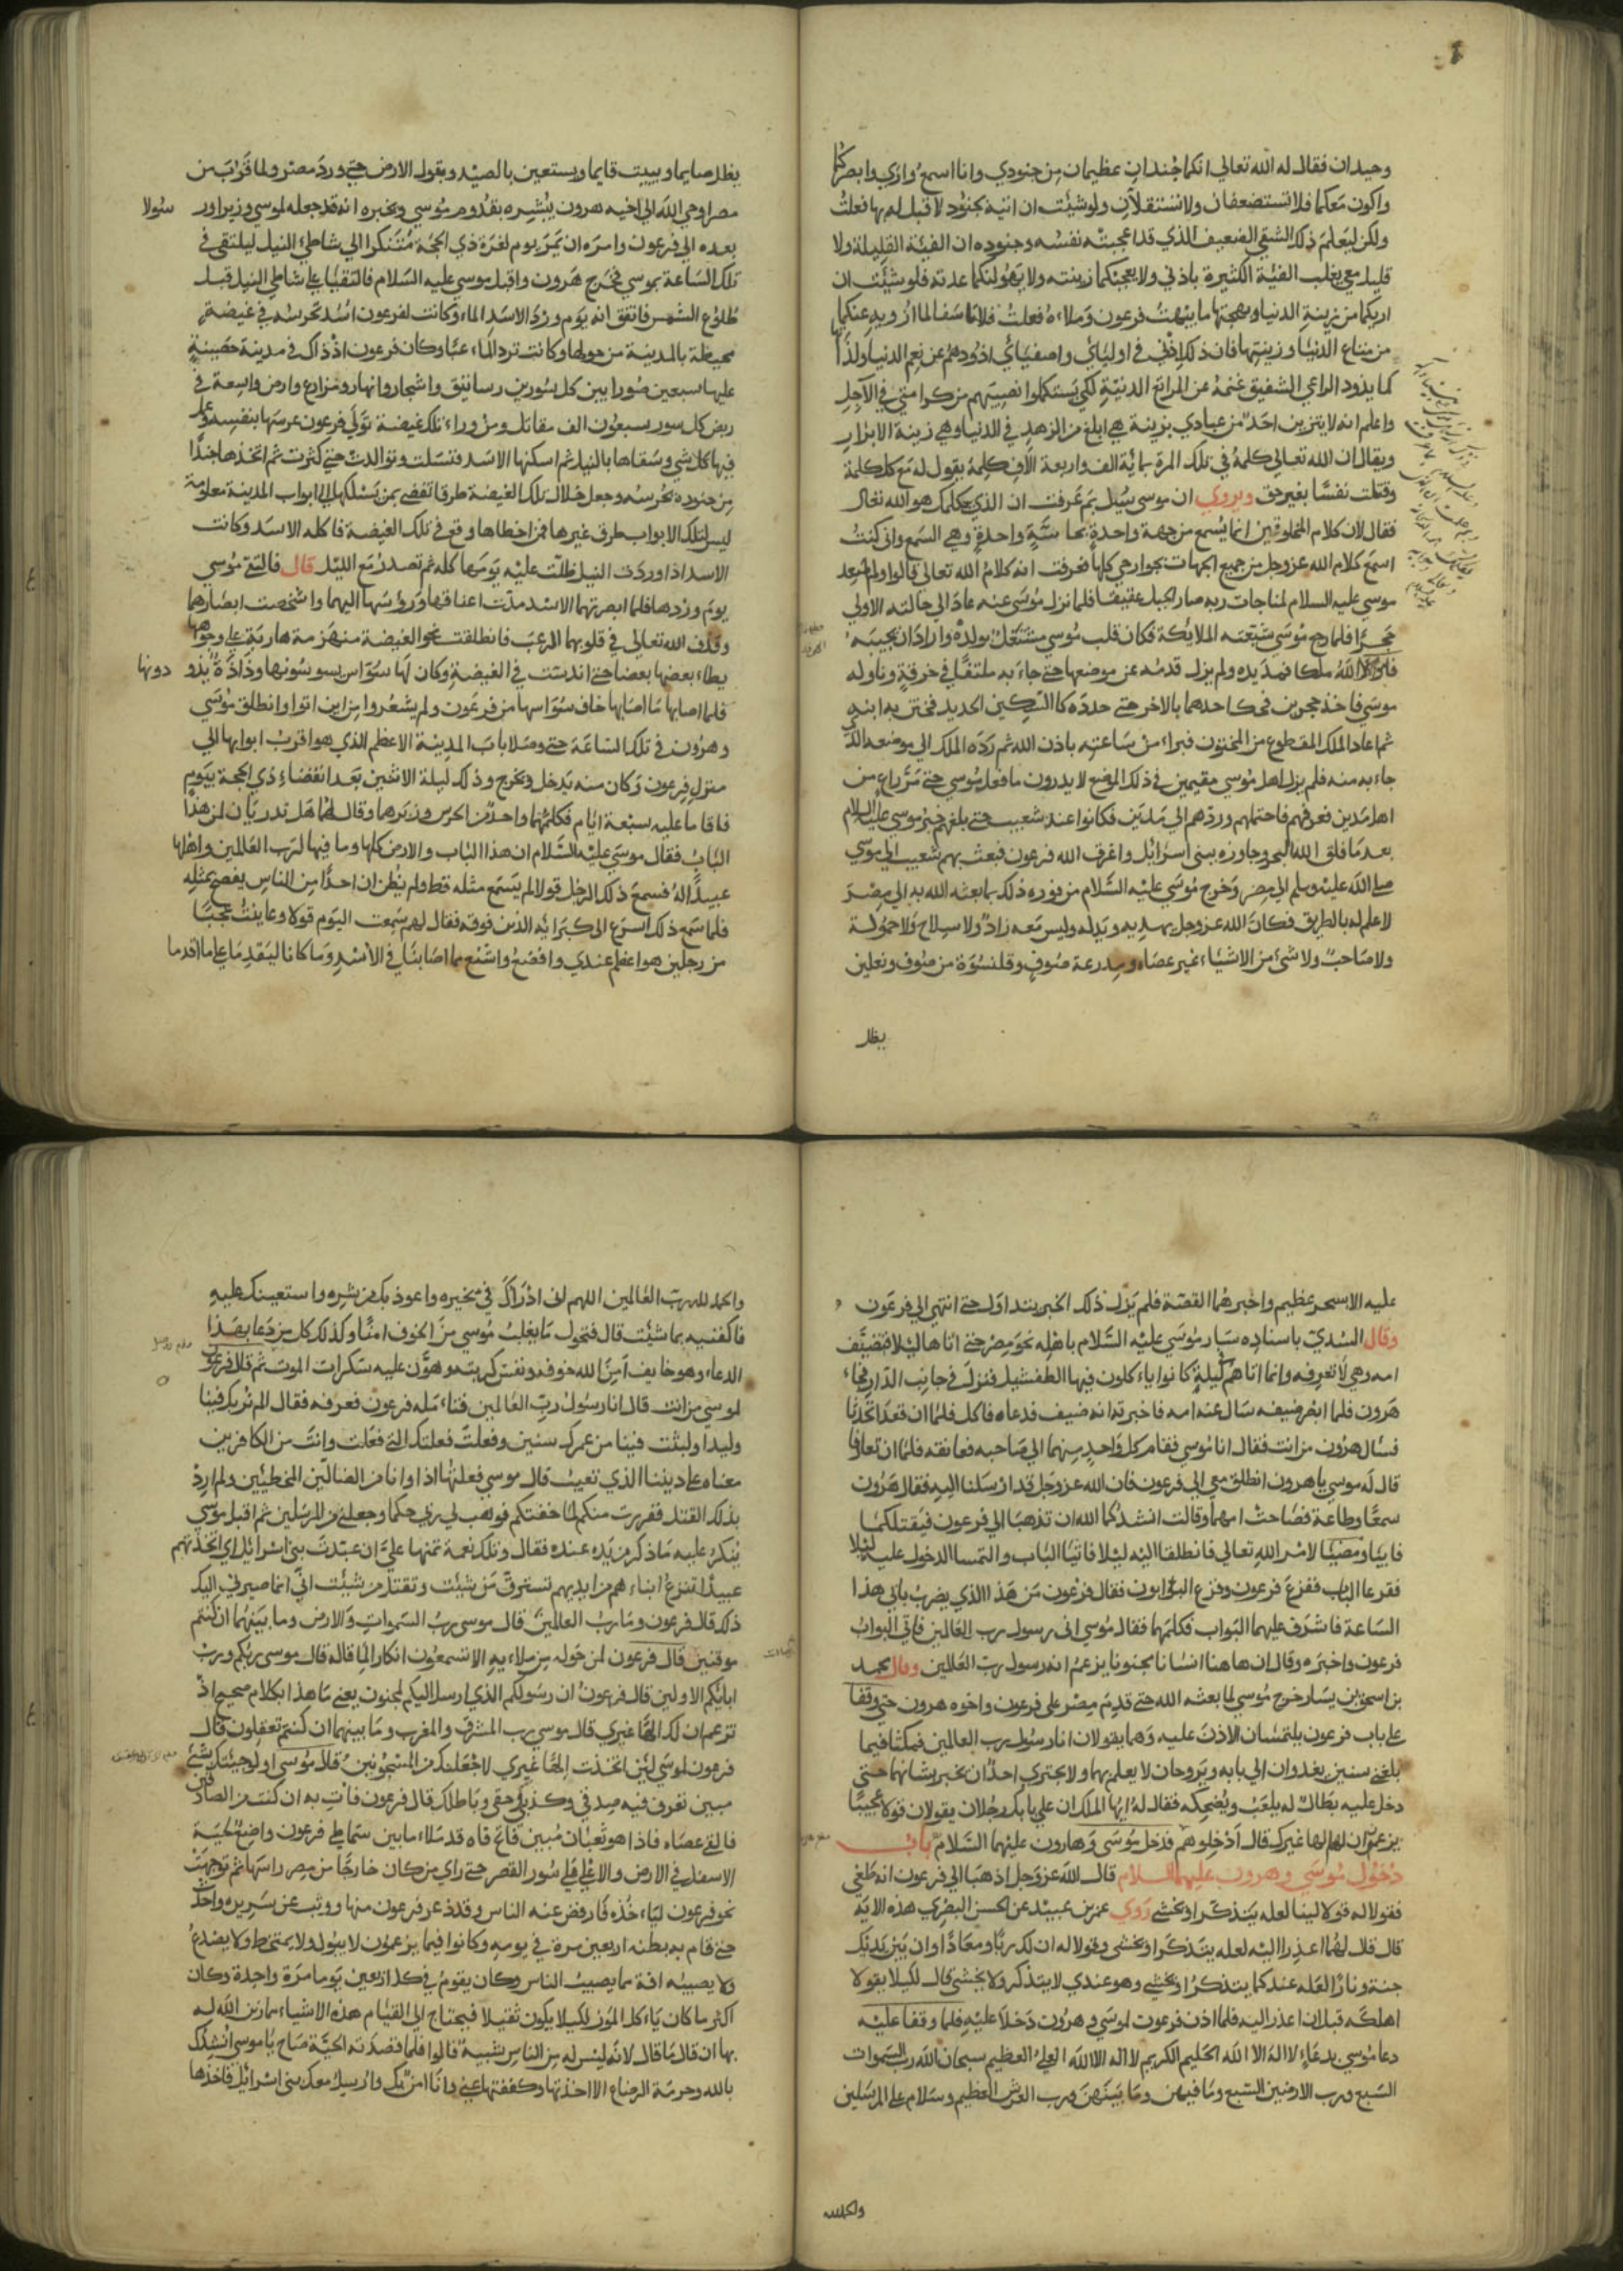 وحيدان فقال له الله تعالي انكما جندان عظيمان من جنودي وانا اسمع واري وابصركما
واكون معكما فلا تستضعفان ولا تستقلان ولو شئت ان اتيه بجنود لا قبل له بها فعلت
ولكن ليعلم ذلك الشقي الضعيف الذي قد اعجبته نفسه وجنوده ان الفية القليلة ولا
قليل معي يغلب الفية الكثيرة باذني ولا يعجبنكما زينته ولا يهولنكما عدته فلو شئت ان
اريكما من زينة الدنيا وبهجتها ما يبهت فرعون وملاءه فعلت فلا تاسفا لما ازويه عنكما
من متاع الدنيا وزينتها فان ذلك في اوليائي واصفيائي اذودهم عن نعم الدنيا ولذاتها
كما يذود الراعي الشفيق غنمه عن المراتع الدنية لكي يستكملوا نصيبهم من كرامتي في الآجل
واعلم انه لا يتزين احد من عبادي بزينة هي ابلغ من الزهد في الدنيا وهي زينة الابرار
ويقال ان الله تعالي كلمه في تلك المرة بماية الف واربعة الاف كلمة يقول له مع كل كلمة
وقتلت نفسا بغير حق ويروي ان موسي سيل بم عرفت ان الذي يكلمك هو الله تعالى
فقال لان كلام المخلوقين انما يسمع من جهة واحدة بحاسة واحدة وهي السمع واني كنت
اسمع كلام الله عز وجل من جميع الجهات بجوارحي كلها فعرفت انه كلام الله تعالي قالوا ولما صعد
موسي عليه السلام لمناجات ربه صار الجبل عقيقا فلما نزل موسي عنه عاد الي حالته الاولي
حجرا فلما رجع موسي شيعته الملايكة فكان قلب موسي مشتغل بولده واراد ان يجيبه
فامر الله ملكا فمد يده ولم يزل قدمه عن موضعها حتي جاء به ملتفا في خرقة وناوله
موسي فاخذ حجرين فحك احدهما بالاخر حتي حدده كالسكين الحديد فختن به ابنه
ثم اعاد الملك المقطوع من المختون فبراء من ساعته باذن الله ثم رده الملك الي موضعه الذي
جاء به منه فلم يزل اهل موسي مقيمين في ذلك الموضع لا يدرون ما فعل موسي حتي مر راع من
اهل مدين فعرفهم فاحتملهم وردهم الي مدين فكانوا عند شعيب حتي بلغهم خبر موسي عليه السلام
بعد ما فلق الله البحر وجاوزه بني اسرائل واغرق الله فرعون فبعث بهم شعيب الي موسي
صلي الله عليه وسلم الي مصر وخرج موسي عليه السلام من فوره ذلك بما بعثه الله به الي مصر
لا علم له بالطريق فكان الله عز وجل يهديه ويدله وليس معه زاد ولا سلاح ولا حمولة
ولا صاحب ولا شيء من الاشياء غير عصاه ومدرعة صوف وقلنسوة من صوف ونعلين
يظل
يظل صايما ويبيت قايما ويستعين بالصيد وبقول الارض حتي ورد مصر ولما قرب من
مصر اوحي الله الي اخيه هرون يبشره بقدوم موسي ويخبره انه قد جعله لموسي وزيرا ور
سولا
بعده الي فرعون وامره ان يمر يوم لغرة ذي الحجة متنكرا الي شاطئ النيل ليلتقي في
تلك الساعة بموسي فخرج هرون واقبل موسي عليه السلام فالتقيا علي شاطي النيل قبل
طلوع الشمس فاتفق انه يوم ورد الاسد الماء وكانت لفرعون اسد تحرسه في غيضة
محيطة بالمدينة من حولها وكانت ترد الماء غبا وكان فرعون اذ ذاك في مدينة حصينة
عليها سبعين صورا بين كل سورين رساتيق واشجار وانهار ومزارع وارض واسعة في
ربض كل سور سبعون الف مقاتل ومن وراء تلك غيضة تولي فرعون غرسها بنفسه وعمل
فيها كل شي وسقاها بالنيل ثم اسكنها الاسد فنسلت وتوالدت حتي كثرت ثم اتخذها جندا
من جنوده تحرسه وجعل خلال تلك الغيضة طرقا تفضي بمن يسلكها الي ابواب المدينة معلومة
ليس لتلك الابواب طرق غيرها فمن اخطاها وقع في تلك الغيضة فاكله الاسد وكانت
الاسد اذا وردت النيل ظلت عليه يومها كله ثم تصدر مع الليل قال فالتقي موسي
يوم وردها فلما ابصرتهما الاسد مدت اعناقها ورؤسها اليهما واشخصت ابصارها
وقذف الله تعالي في قلوبها الرعب فانطلقت نحو الغيضة منهزمة هاربة علي وجوهها
يطاء بعضها بعضا حتي اندست في الغيضة وكان لها سواس يسوسونها وذادة يذو
دونها
فلما اصابها ما اصابها خاف سواسها من فرعون ولم يشعروا من اين اتوا وانطلق موسي
وهرون في تلك الساعة حتي وصلا باب المدينة الاعظم الذي هو اقرب ابوابها الي
منزل فرعون وكان منه يدخل ويخرج وذلك ليلة الاثنين بعد انقضاء ذي الحجة بيوم
فاقاما عليه سبعة ايام فكلمهما واحد من الحرس وزبرهما وقال لهما هل تدريان لمن هذا
الباب فقال موسي عليه السلام ان هذا الباب والارض كلها وما فيها لرب العالمين واهلها
عبيد له فسمع ذلك الرجل قولا لم يسمع مثله قط ولم يظن ان احدا من الناس يفصح بمثله
فلما سمع ذلك اسرع الي كبرايه الذين فوقه فقال لهم سمعت اليوم قولا وعاينت عجبا
من رجلين هو اعظم عندي وافضع واشنع مما اصابنا في الاسد وما كانا ليقدما علي ما اقدما
عليه الا بسحر عظيم واخبرهما القصة فلم يزل ذلك الخبر يتداول حتي انتهي الي فرعون
وقال السدي باسناده سار موسي عليه السلام باهله نحو مصر حتي اتاها ليلا فتضيف
امه وهي لا تعرفه وانما اتاهم في ليلة كانوا ياكلون فيها الطفشيل فنزل في جانب الدار فجاء
هرون فلما ابصر ضيفه سال عنه امه فاخبرته انه ضيف فدعاه فاكل فلما ان قعدا تحدثا
فسال هرون من انت فقال انا موسي فقام كل واحد منهما الي صاحبه فعانقه فلما ان تعارفا
قال له موسي يا هرون انطلق معي الي فرعون فان الله عز وجل قد ارسلنا اليه فقال هرون
سمعا وطاعة فصاحت امهما وقالت انشدكما الله ان تذهبا الي فرعون فيقتلكما
فابيا ومضيا لامر الله تعالي فانطلقا اليه ليلا فاتيا الباب والتمسا الدخول عليه ليلا
فقرعا الباب ففزع فرعون وفزع البوابون فقال فرعون من هذا الذي يضرب بابي هذا
الساعة فاشرف عليهما البواب فكلمهما فقال موسي اني رسول رب العالمين فاتي البواب
فرعون واخبره وقال ان هاهنا انسانا مجنونا يزعم انه رسول رب العالمين وقال محمد
بن اسحق بن يسار خرج موسي لما بعثه الله حتي قدم مصر علي فرعون واخوه هرون حتي وقفا
علي باب فرعون يلتمسان الاذن عليه وهما يقولان انا رسول رب العالمين فمكثا فيما
بلغني سنين يغدوان الي بابه ويروحان لا يعلم بهما ولا يجتري احد ان يخبر بشانهما حتي
دخل عليه بطال له يلعب ويضحكه فقال له ايها الملك ان علي بابك رجلان يقولان قولا عجيبا
يزعمون ان لهم الها غيرك قال ادخلوهم فدخل موسي وهارون عليهما السلام باب
دخول موسي وهرون عليهما السلام قال الله عز وجل اذهبا الي فرعون انه طغي
فقولا له قولا لينا لعله يتذكر او يخشي روي عمر بن عبيد عن الحسن البصري هذه الايه
قال قال لهما اعذرا اليه لعله يتذكر او يخشي وقولا له ان لك ربا ومعادا وان بين يديك
جنة ونارا لعله عند كما يتذكر او يخشي وهو عندي لا يتذكر ولا يخشي قال لكيلا يقولا
اهلكه قبل ان اعذر اليه فلما اذن فرعون لموسي وهرون دخلا عليه فلما وقفا عليه
دعا موسي بدعاء لا اله الا الله الحليم الكريم لا اله الا الله العلي العظيم سبحان الله رب السموات
السبع ورب الارضين السبع وما فيهن وما بينهن ورب العرش العظيم وسلام علي المرسلين
والحمد لله
والحمد لله رب العالمين اللهم اني ادراك في نحره واعوذ بك من شره واستعينك عليه
فاكفنيه بما شئت قال فتحول ما بقلب موسي من الخوف امنا وكذلك كل من دعا بهذا
الدعاء وهو خايف آمن الله خوفه ونفس كربته وهون عليه سكرات الموت ثم قال فرعون
لموسي من انت قال انا رسول رب العالمين فتاءمله فرعون فعرفه فقال الم نربك فينا
وليدا ولبثت فينا من عمرك سنين وفعلت فعلتك التي فعلت وانت من الكافرين
معناه علي ديننا الذي تعيب قال موسي فعلتها اذا وانا من الضالين المخطيين ولم ارد
بذلك القتل ففررت منكم لما خفتكم فوهب لي ربي حكما وجعلني من المرسلين ثم اقبل موسي
ينكر عليه ما ذكر من يده عنده فقال وتلك نعمة تمنها علي ان عبدت بني اسرائل اي اتخذتهم
عبيدا تنزع ابناءهم من ايديهم تسترق من شئت وتقتل من شئت اني انما صيرني اليك
ذلك قال فرعون وما رب العالمين قال موسي رب السموات والارض وما بينهما ان كنتم
موقنين قال فرعون لمن حوله من ملاءيه الا تسمعون انكارا لما قاله قال موسي ربكم ورب
ابايكم الاولين قال فرعون ان رسولكم الذي ارسل اليكم لمجنون يعني ما هذا بكلام صحيح اذ
تزعم ان لك الها غيري قال موسي رب المشرق والمغرب وما بينهما ان كنتم تعقلون قال
فرعون لموسي لئن اتخذت الها غيري لاجعلنك من المسجونين قال موسي اولو جئتك بشئ
مبين تعرف فيه صدقي وكذبك وحقي وباطلك قال فرعون فات به ان كنت من الصادقين
فالقي عصاه فاذا هو ثعبان مبين فاتح فاه قد ملاء ما بين سماطي فرعون واضع لحيه
الاسفل في الارض والاعلي علي سور القصر حتي راي من كان خارجا من مصر راسها ثم توجهت
نحو فرعون لياءخذه فارفض عنه الناس وقلذ عر فرعون منها ووثب عن سريره واحدث
حتي قام به بطنه اربعين مرة في يومه وكانوا فيما يزعمون لا يبول ولا يمتخط ولا يصدع
ولا يصيبه افة مما يصيب الناس وكان يقوم في كل اربعين يوما مرة واحدة وكان
اكثر ما كان ياءكل الموز لكيلا يكون ثقيلا فيحتاج الي القيام هذه الاشياء مما زين الله له
بها ان قال ما قال لانه ليس له من الناس شبيه قالوا فلما قصدته الحية صاح يا موسي انشدك
بالله وحرمة الرضاع الا اخذتها وكففتها عني وانا اومن بك وارسل معك بني اسرائل فاخذها